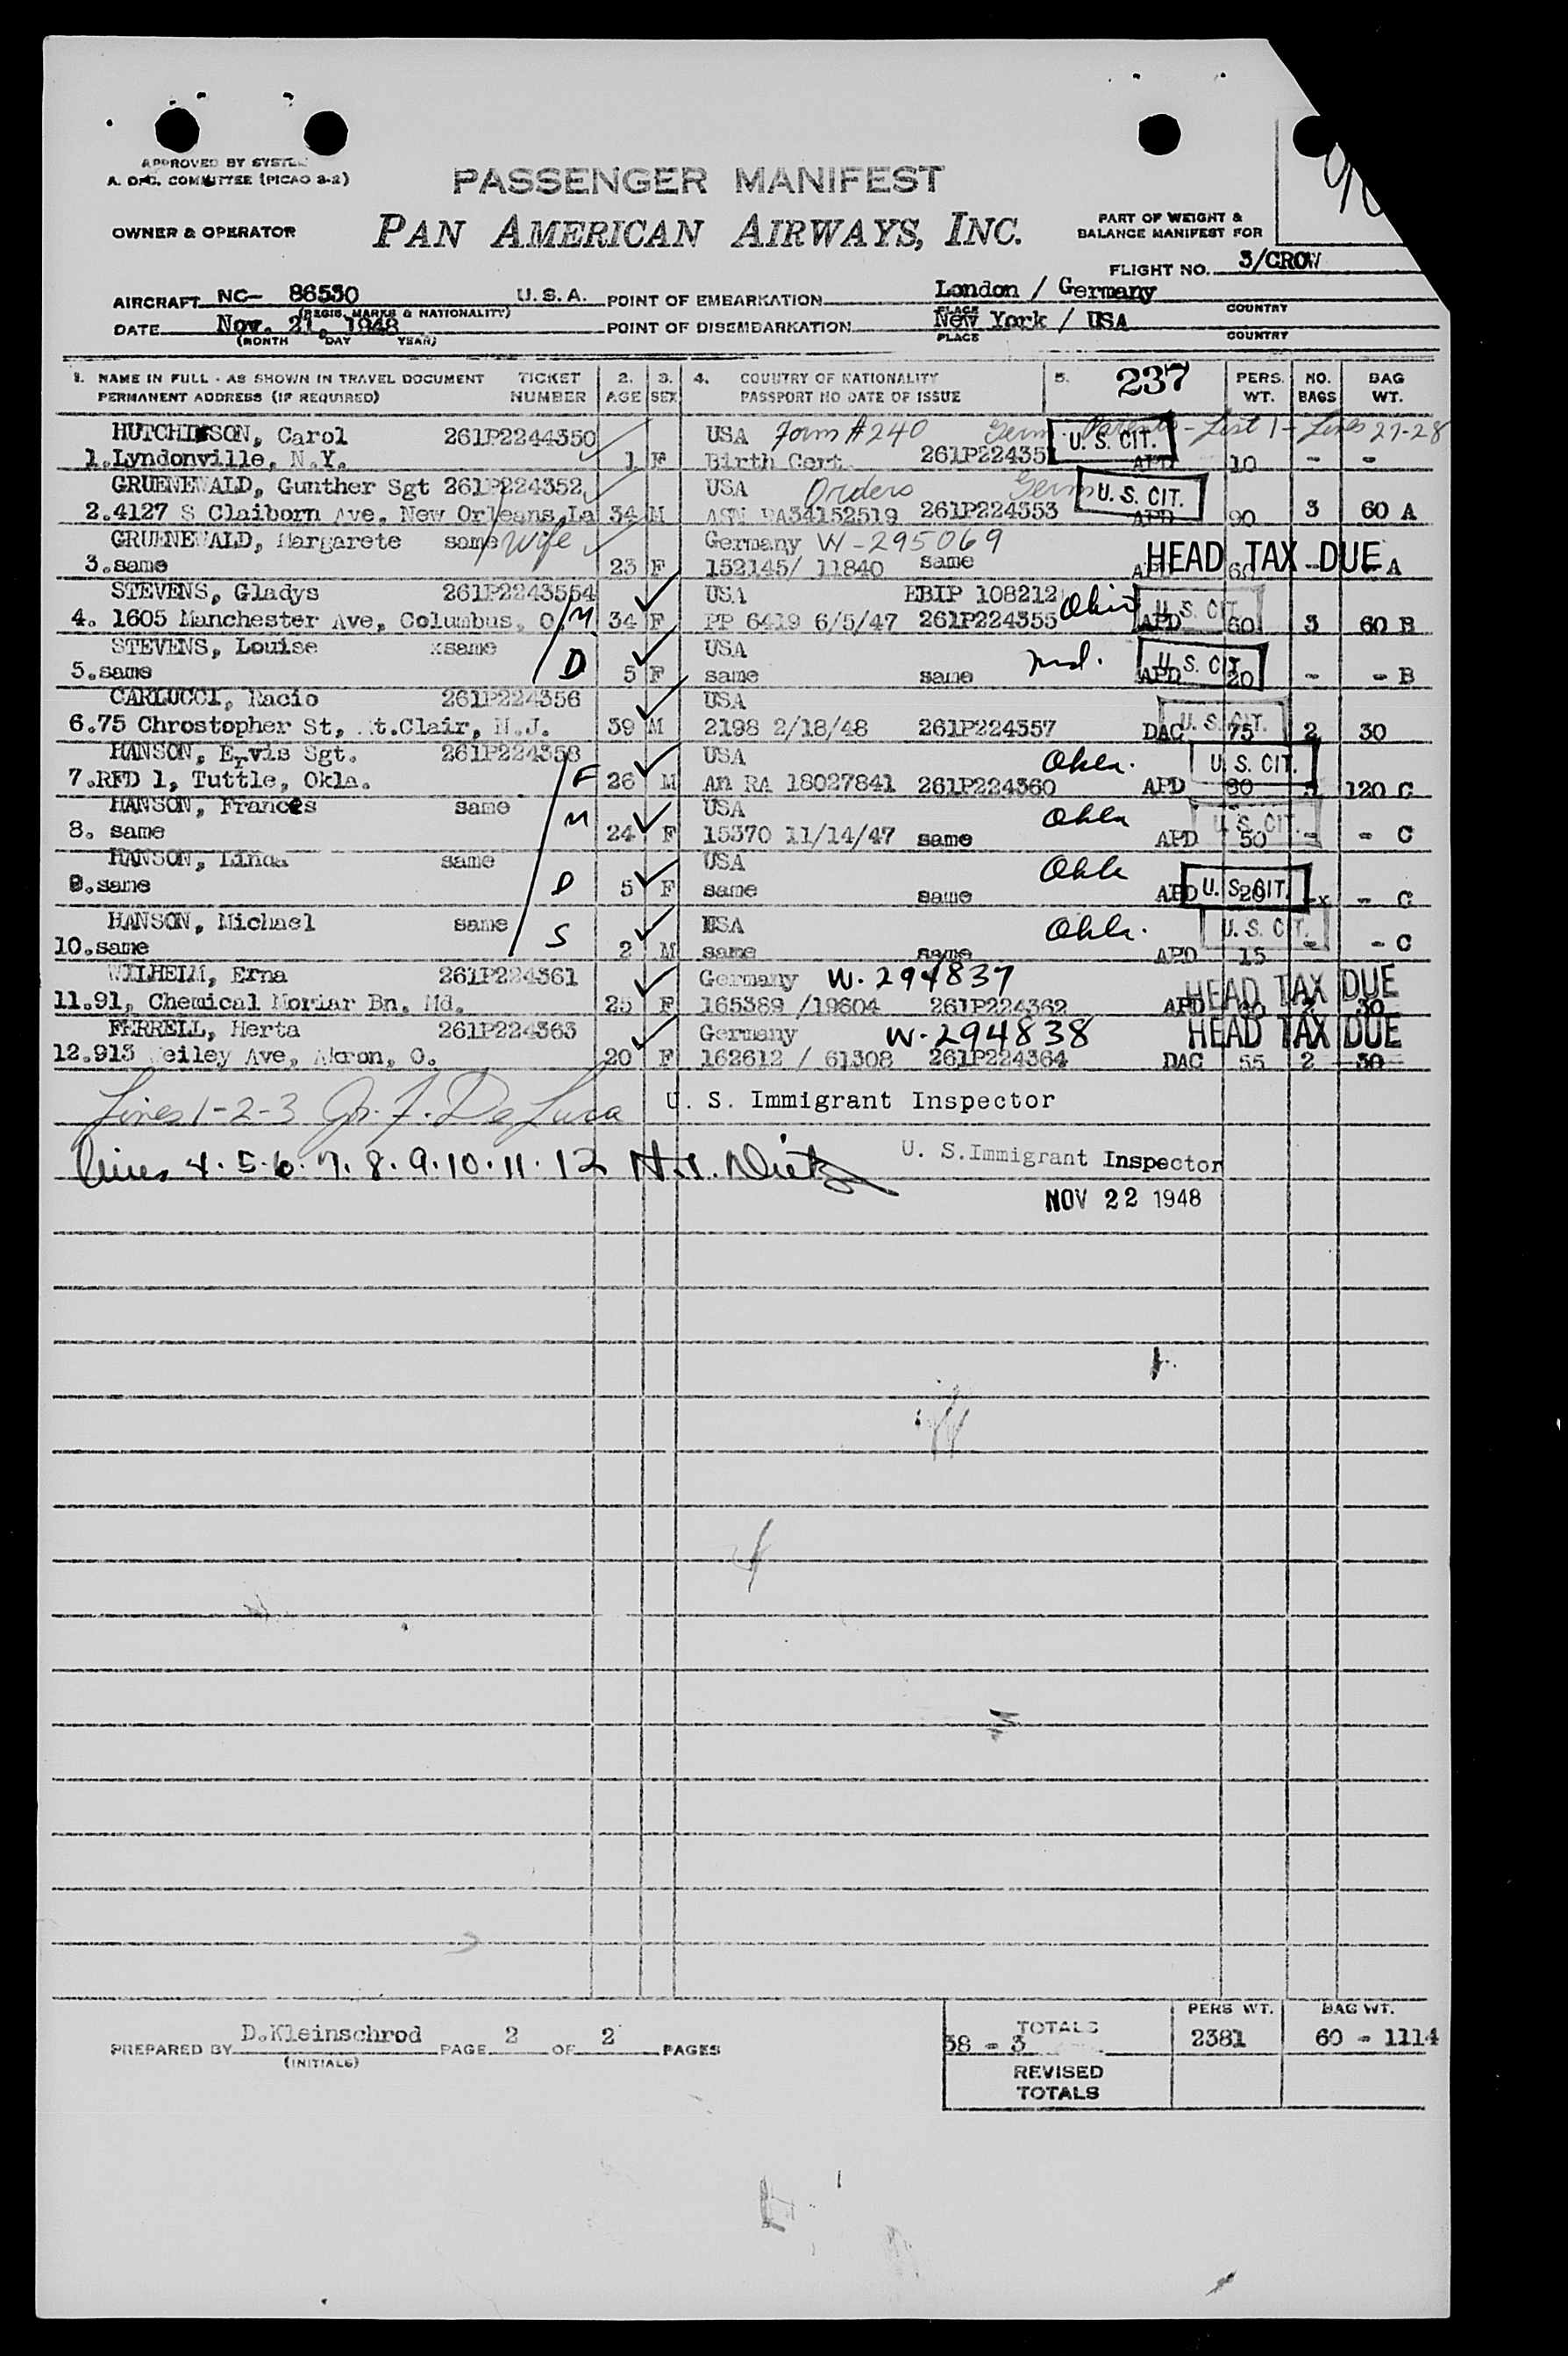 APPROVED BY SYSTEM
A. O. C. COMMITTEE (PICAO 3-2)
PASSENGER MANIFEST
OWNER & OPERATOR
PAN AMERICAN AIRWAYS, INC.
PART OF WEIGHT &
BALANCE MANIFEST FOR
FLIGHT NO. 3/CROW
AIRCRAFT NC- 86530 U.S.A. POINT OF EMBARKATION London / Germany
(REGIS. MARKS & NATIONALITY) PLACE COUNTRY
DATE Nov. 21, 1948 POINT OF DISEMBARKATION New York / USA
(MONTH DAY YEAR) PLACE COUNTRY
1. NAME IN FULL - AS SHOWN IN TRAVEL DOCUMENT TICKET 2. 3. 4. COUNTRY OF NATIONALITY 5. 237 PERS. NO. BAG
PERMANENT ADDRESS (IF REQUIRED) NUMBER AGE SEX PASSPORT NO DATE OF ISSUE WT. BAGS WT.
HUTCHINSON, Carol 261P2244350 USA Form #240 Germ U. S. CIT. Parents - List 1 - Lines 27-28
1.Lyndonville, N.Y. 1 F Birth Cert. 261P22435 APD 10 - -
GRUENEWALD, Gunther Sgt 261P224352 USA Orders Germ U. S. CIT.
2.4127 S Claiborn Ave. New Orleans,La 34 M ASN RA34152519 261P224353 APD 90 3 60 A
GRUENEWALD, Margarete same Wife Germany W-295069 HEAD TAX DUE
3.same 23 F 152145/ 11840 same 60 - - A
STEVENS, Gladys 261P2243554 USA EBIP 108212 Ohio U. S. CIT.
4. 1605 Manchester Ave, Columbus, O. M 34 F PP 6419 6/5/47 261P224355 APD 60 3 60 B
STEVENS, Louise xsame USA Md. U. S. CIT.
5.same D 5 F same same APD 20 - - B
CARLUCCI, Racio 261P224356 USA U. S. CIT.
6.75 Chrostopher St, Mt.Clair, N.J. 39 M 2198 2/18/48 261P224357 DAC 75 2 30
HANSON, Ervis Sgt. 261P224358 USA Okla. U. S. CIT.
7.RFD 1, Tuttle, Okla. F 26 M An RA 18027841 261P224360 APD 80 120 C
HANSON, Frances same USA Okla U. S. CIT.
8. same M 24 F 15370 11/14/47 same APD 50 - - C
HANSON, Linda same USA Okla U. S. CIT.
9.same D 5 F same same APD 20 - - C
HANSON, Michael same USA Okla. U. S. CIT.
10.same S 2 M same same APD 15 - - C
WILHEIM, Erna 261P224361 Germany W-294837 HEAD TAX DUE
11.91, Chemical Mortar Bn. Md. 25 F 165389 /19604 261P224362 APD 2 30
FERRELL, Herta 261P224363 Germany W-294838 HEAD TAX DUE
12.913 Weiley Ave, Akron, O. 20 F 162612 / 61308 261P224364 DAC 55 2 30
Lines 1-2-3 De Luca U. S. Immigrant Inspector
Lines 4.5.6.7.8.9.10.11.12 U. S. Immigrant Inspector
NOV 22 1948
PREPARED BY D.Kleinschrod PAGE 2 OF 2 PAGES
(INITIALS)
PERS WT. BAG WT.
TOTALS 38 - 3 2381 60 - 1114
REVISED
TOTALS